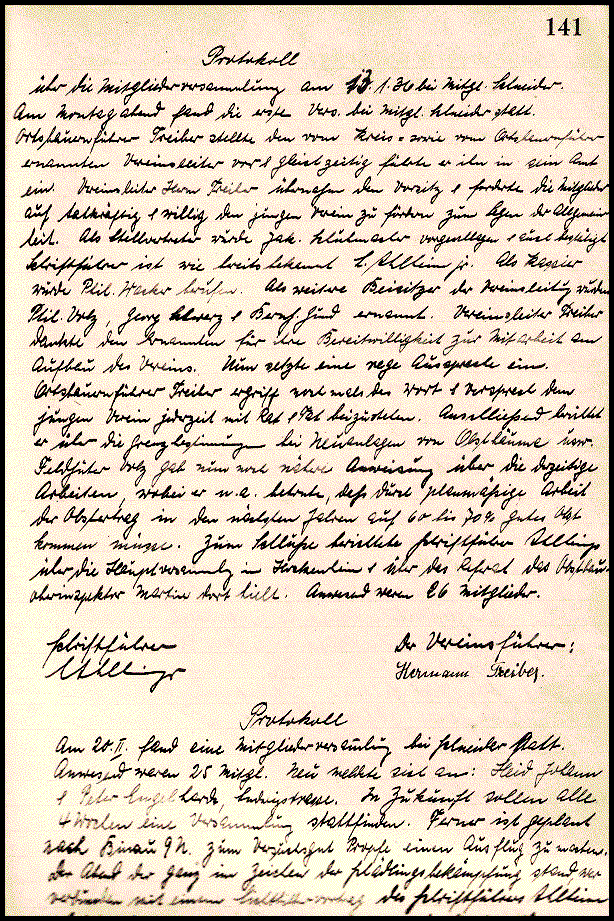 141
Protokoll
über die Mitgliederversammlung am 13.1.36 bei Mitgl. Schneider.
Am Montag abend fand die erste Vers. bei Mitgl. Schneider statt.
Ortsbauernführer Treiber stellte den vom Kreis- sowie vom Ortsbauernführer
ernannten Vereinsleiter vor & gleichzeitig führte er ihn in sein Amt
ein. Vereinsleiter Herm. Treiber übernahm den Vorsitz & forderte die Mitglieder
auf tatkräftig & willig den jungen Verein zu fördern zum Segen der Allgemein
heit. Als Stellvertreter wurde Jak. vorgeschlagen & auch bestätigt
Schriftführer ist wie bereits bekannt jr. Als Kassier
wurde Phil. Wacker berufen. Als weitere Beisitzer der Vereinsleitung wurden
Phil. Volz, Georg Schwarz & Bernh. Gund ernannt. Vereinsleiter Treiber
dankte den Ernannten für ihre Bereitwilligkeit zur Mitarbeit am
Aufbau des Vereins. Nun setzte eine rege Aussprache ein.
Ortsbauernführer Treiber ergriff nochmals das Wort & versprach dem
jungen Verein jederzeit mit Rat & Tat beizustehen. Anschließend berichtet
er über die Grenzbestimmungen bei Neuanlagen von Obstbäume usw.
Feldhüter Volz gab nun noch nähere Anweisung über die derzeitige
Arbeiten, wobei er u.a. betonte, daß durch planmäßige Arbeit
der Obstertrag in den nächsten Jahren auf 60 bis 70% gutes Obst
kommen müsse. Zum Schluße berichtete Schriftführer
über die Hauptversammlg in Hockenheim & über das Referat das Obstbau-
oberinspektor Martin dort hielt. Anwesend waren 26 Mitglieder.
Schriftführer
Der Vereinsführer:
Hermann Treiber.
Protokoll
Am 20.II. fand eine Mitgliederversammlung bei Schneider statt.
Anwesend waren 25 Mitgl. Neu meldete sich an: Heid Johann
& Peter Engelhardt, Ludwigstrasse. In Zukunft sollen alle
4 Wochen eine Versammlung stattfinden. Ferner ist geplant
nach Binau a/N. zum Versuchsgut einen Ausflug zu machen.
Der Abend der ganz im Zeichen der Schädlingsbekämpfung stand war
verbunden mit einem Lichtbildervortrag des Schriftführers